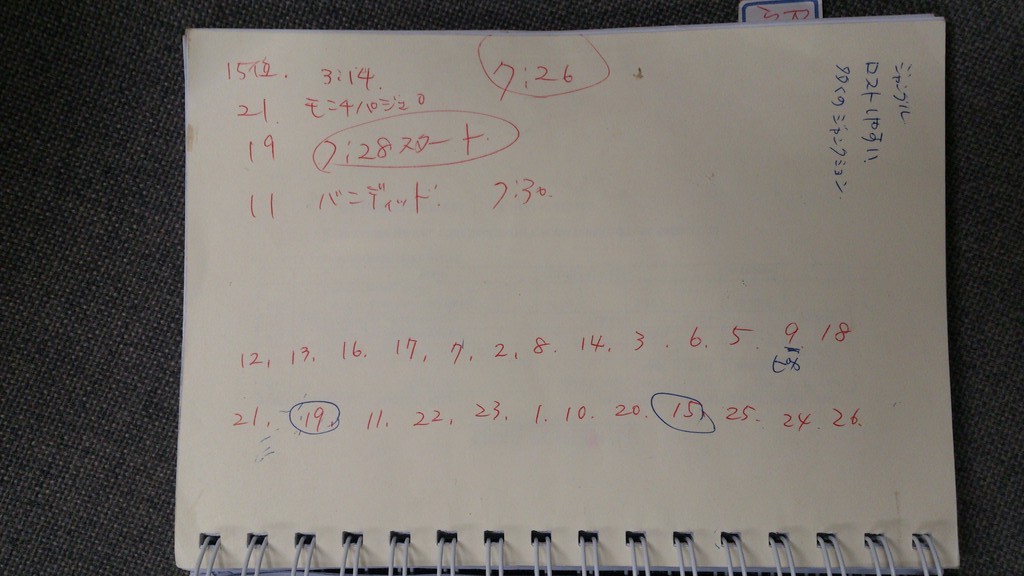 15位. 3:14. 7:26
21. モニチパジェロ
19 7:28スタート.
11 バンディット: 7:30.
12, 13, 16. 17, 7, 2, 8. 14. 3. 6. 5. 9 18
21, 19, 11. 22, 23, 1. 10. 20. 15, 25. 24. 26.
ジャングル
ロストしやすい
タタくのジャンクション